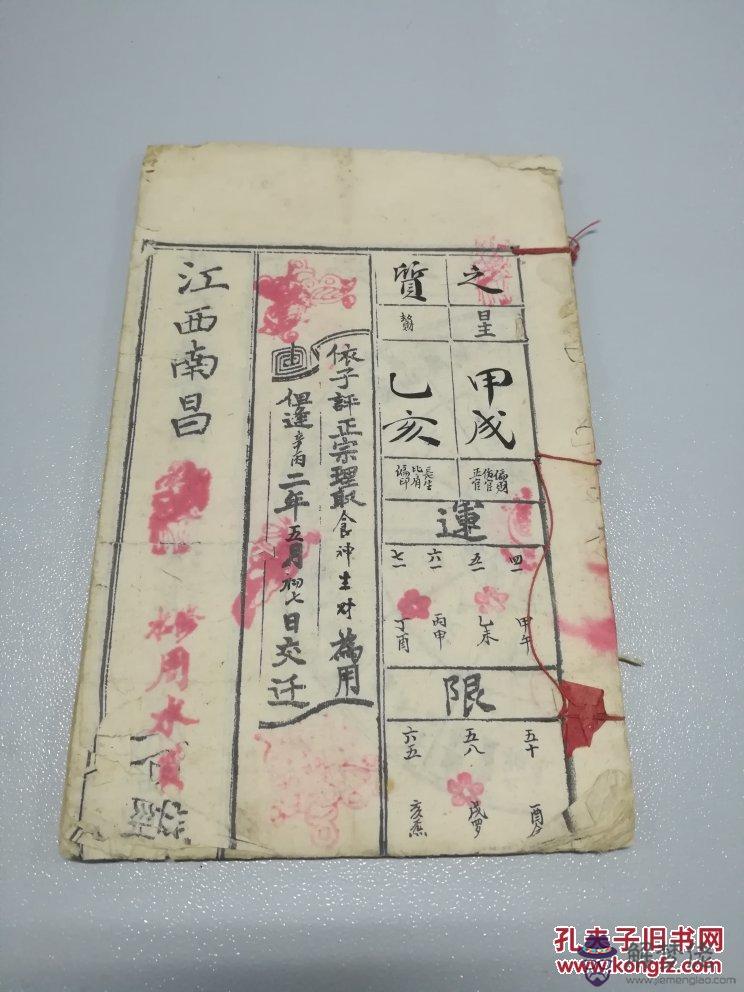 之
質
星
甲戌
乙亥
偏財
傷官
正官
長生
比肩
偏印
運
四一
五一
六一
七一
甲午
乙未
丙申
丁酉
限
五十
五八
六五
依子評正宗理取食神生財為用
但逢辛丙二年五月初七日交迁
江西南昌
用水
孔夫子旧书网
www.kongfz.com
解梦佬
www.jiemenglao.com